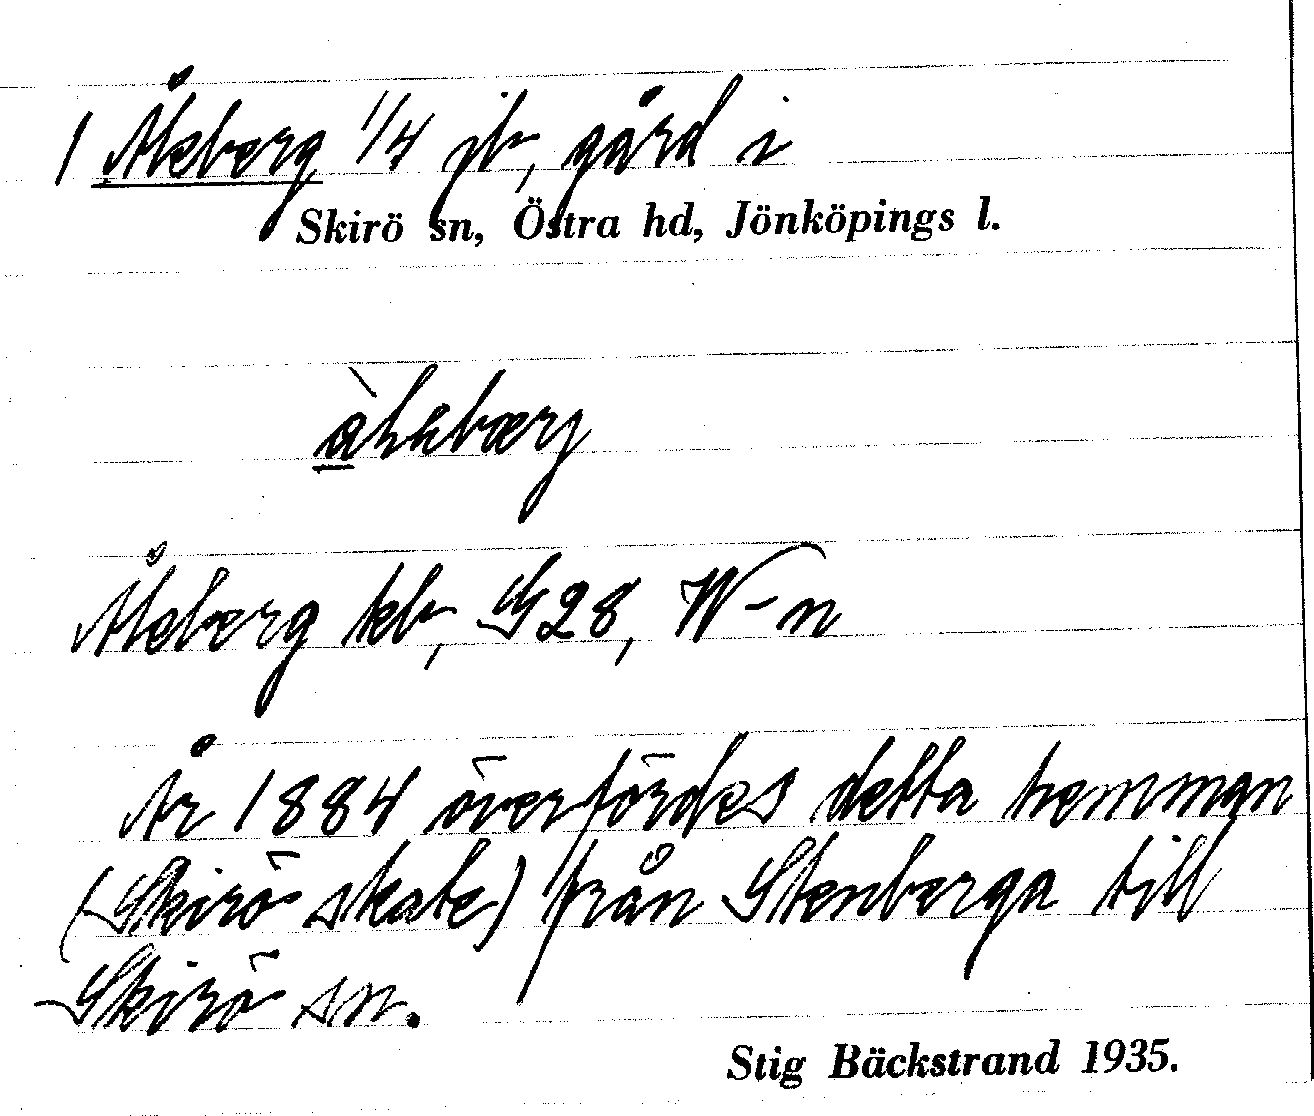 1 Åkeberg 1/4 jb, gård i
Skirö sn, Östra hd, Jönköpings l.
Åkeberg kb, G28, W-n
År 1884 överfördes detta hemman
(Skirö skate) från Stenberga till
Skirö sn.
Stig Bäckstrand 1935.